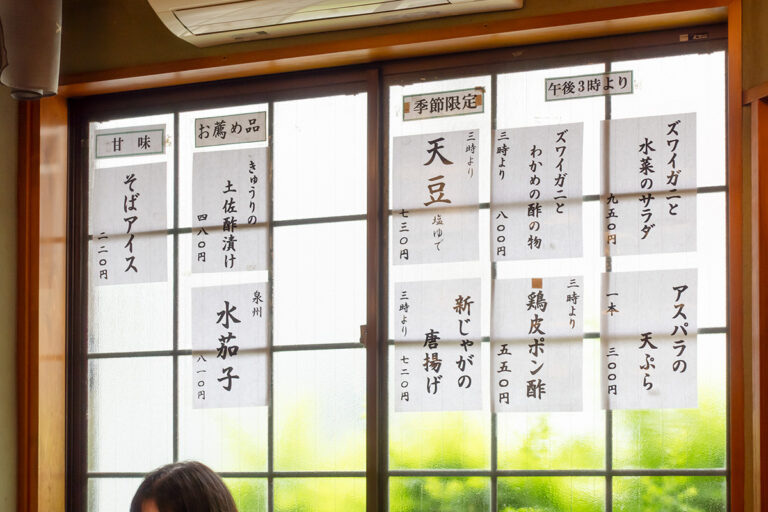 午後3時より
ズワイガニと
水菜のサラダ
九五〇円
アスパラの
天ぷら
一本
三〇〇円
ズワイガニと
わかめの酢の物
三時より
八〇〇円
三時より
鶏皮ポン酢
五五〇円
季節限定
三時より
天豆
塩ゆで
七三〇円
新じゃがの
唐揚げ
三時より
七二〇円
お薦め品
きゅうりの
土佐酢漬け
四八〇円
泉州
水茄子
八一〇円
甘味
そばアイス
二二〇円